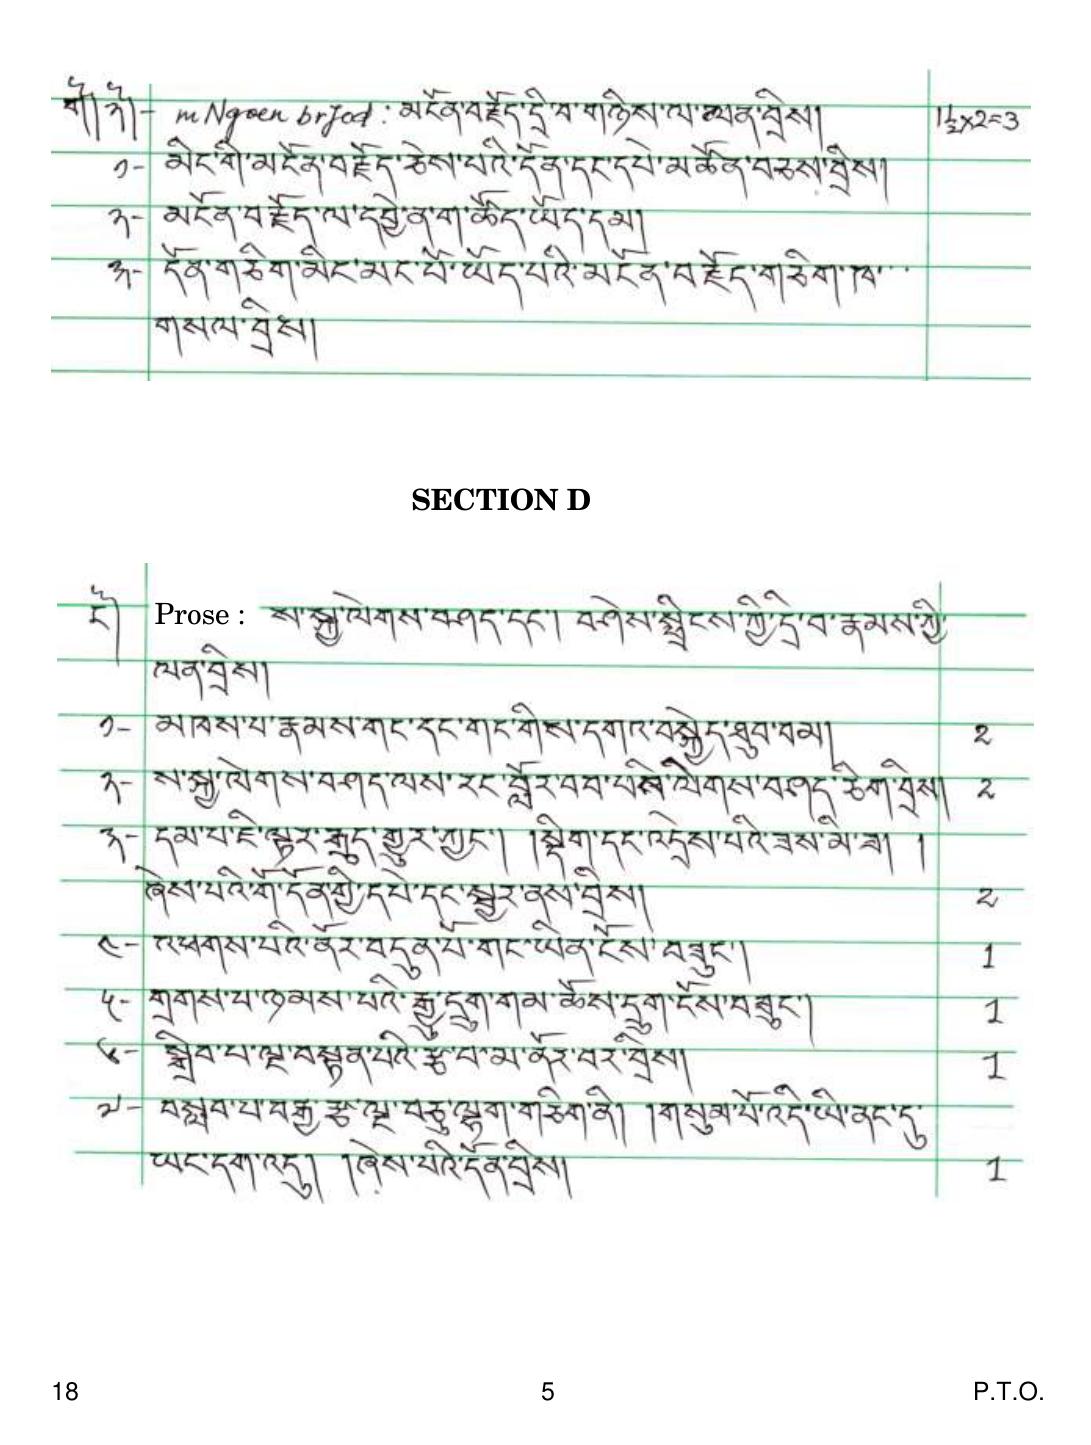 གོ། ཉོ།- mNgoen brJod : མངོན་བརྗོད་དྲི་བ་གཉིས་ལ་ལན་བྲིས། 1½×2=3
༡- མིང་གི་མངོན་བརྗོད་ཅེས་པའི་དོན་དང་དཔེ་མཚོན་བཅས་བྲིས།
༢- མངོན་བརྗོད་ལ་དབྱེ་ན་ག་ཚོད་ཡོད་དམ།
༣- དོན་གཅིག་མིང་མང་པོ་ཡོད་པའི་མངོན་བརྗོད་གཅིག་ཁ་་་
གསལ་བྲིས།
SECTION D
ངོ། Prose : ས་སྐྱ་ལེགས་བཤད་དང་། བཤེས་སྤྲིངས་ཀྱི་དྲི་བ་རྣམས་ཀྱི་
ལན་བྲིས།
༡- མཁས་པ་རྣམས་གང་དང་གང་གིས་དགའ་བསྐྱེད་ཐུབ་བམ། 2
༢- ས་སྐྱ་ལེགས་བཤད་ལས་རང་བློར་བབ་པའི་ལེགས་བཤད་ཅིག་བྲིས། 2
༣- དམ་པ་ཇི་ལྟར་རྒུད་གྱུར་ཀྱང་། །སྡིག་དང་འདྲེས་པའི་ཟས་མི་ཟ། །
ཞེས་པའི་གོ་དོན་གྱི་དཔེ་དང་སྦྱར་ནས་བྲིས། 2
༤- འཕགས་པའི་ནོར་བདུན་པོ་གང་ཡིན་ངོས་བཟུང་། 1
༥- གྲགས་པ་ཉམས་པའི་རྒྱུ་དྲུག་གམ་ཆོས་དྲུག་ངོས་བཟུང་། 1
༦- སྒྲིབ་པ་ལྔ་བསྟན་པའི་རྩ་བ་མ་ནོར་བར་བྲིས། 1
༧- བསླབ་པ་བརྒྱ་རྩ་ལྔ་བཅུ་ལྷག་གཅིག་ནི། །གསུམ་པོ་འདི་ཡི་ནང་དུ་
ཡང་དག་འདུ། །ཞེས་པའི་དོན་བྲིས། 1
18 5 P.T.O.